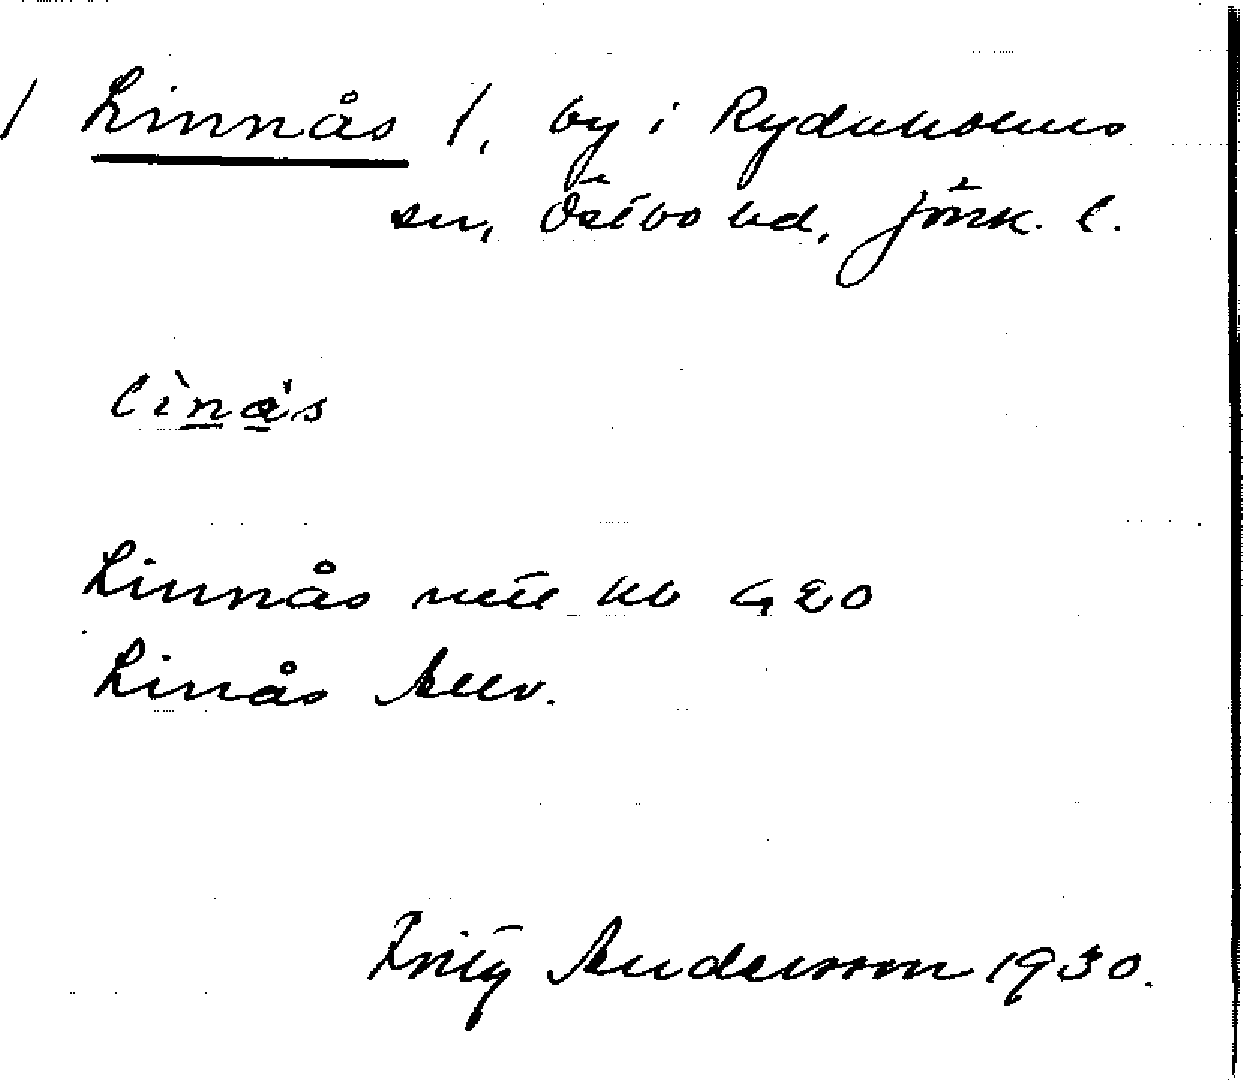 / Linnås /, by i Rydaholms
sn, Östbo hd, Jönk. l.
lìnås
Linnås mtl kb G20
Linås Allv.
Fritz Andersson 1930.